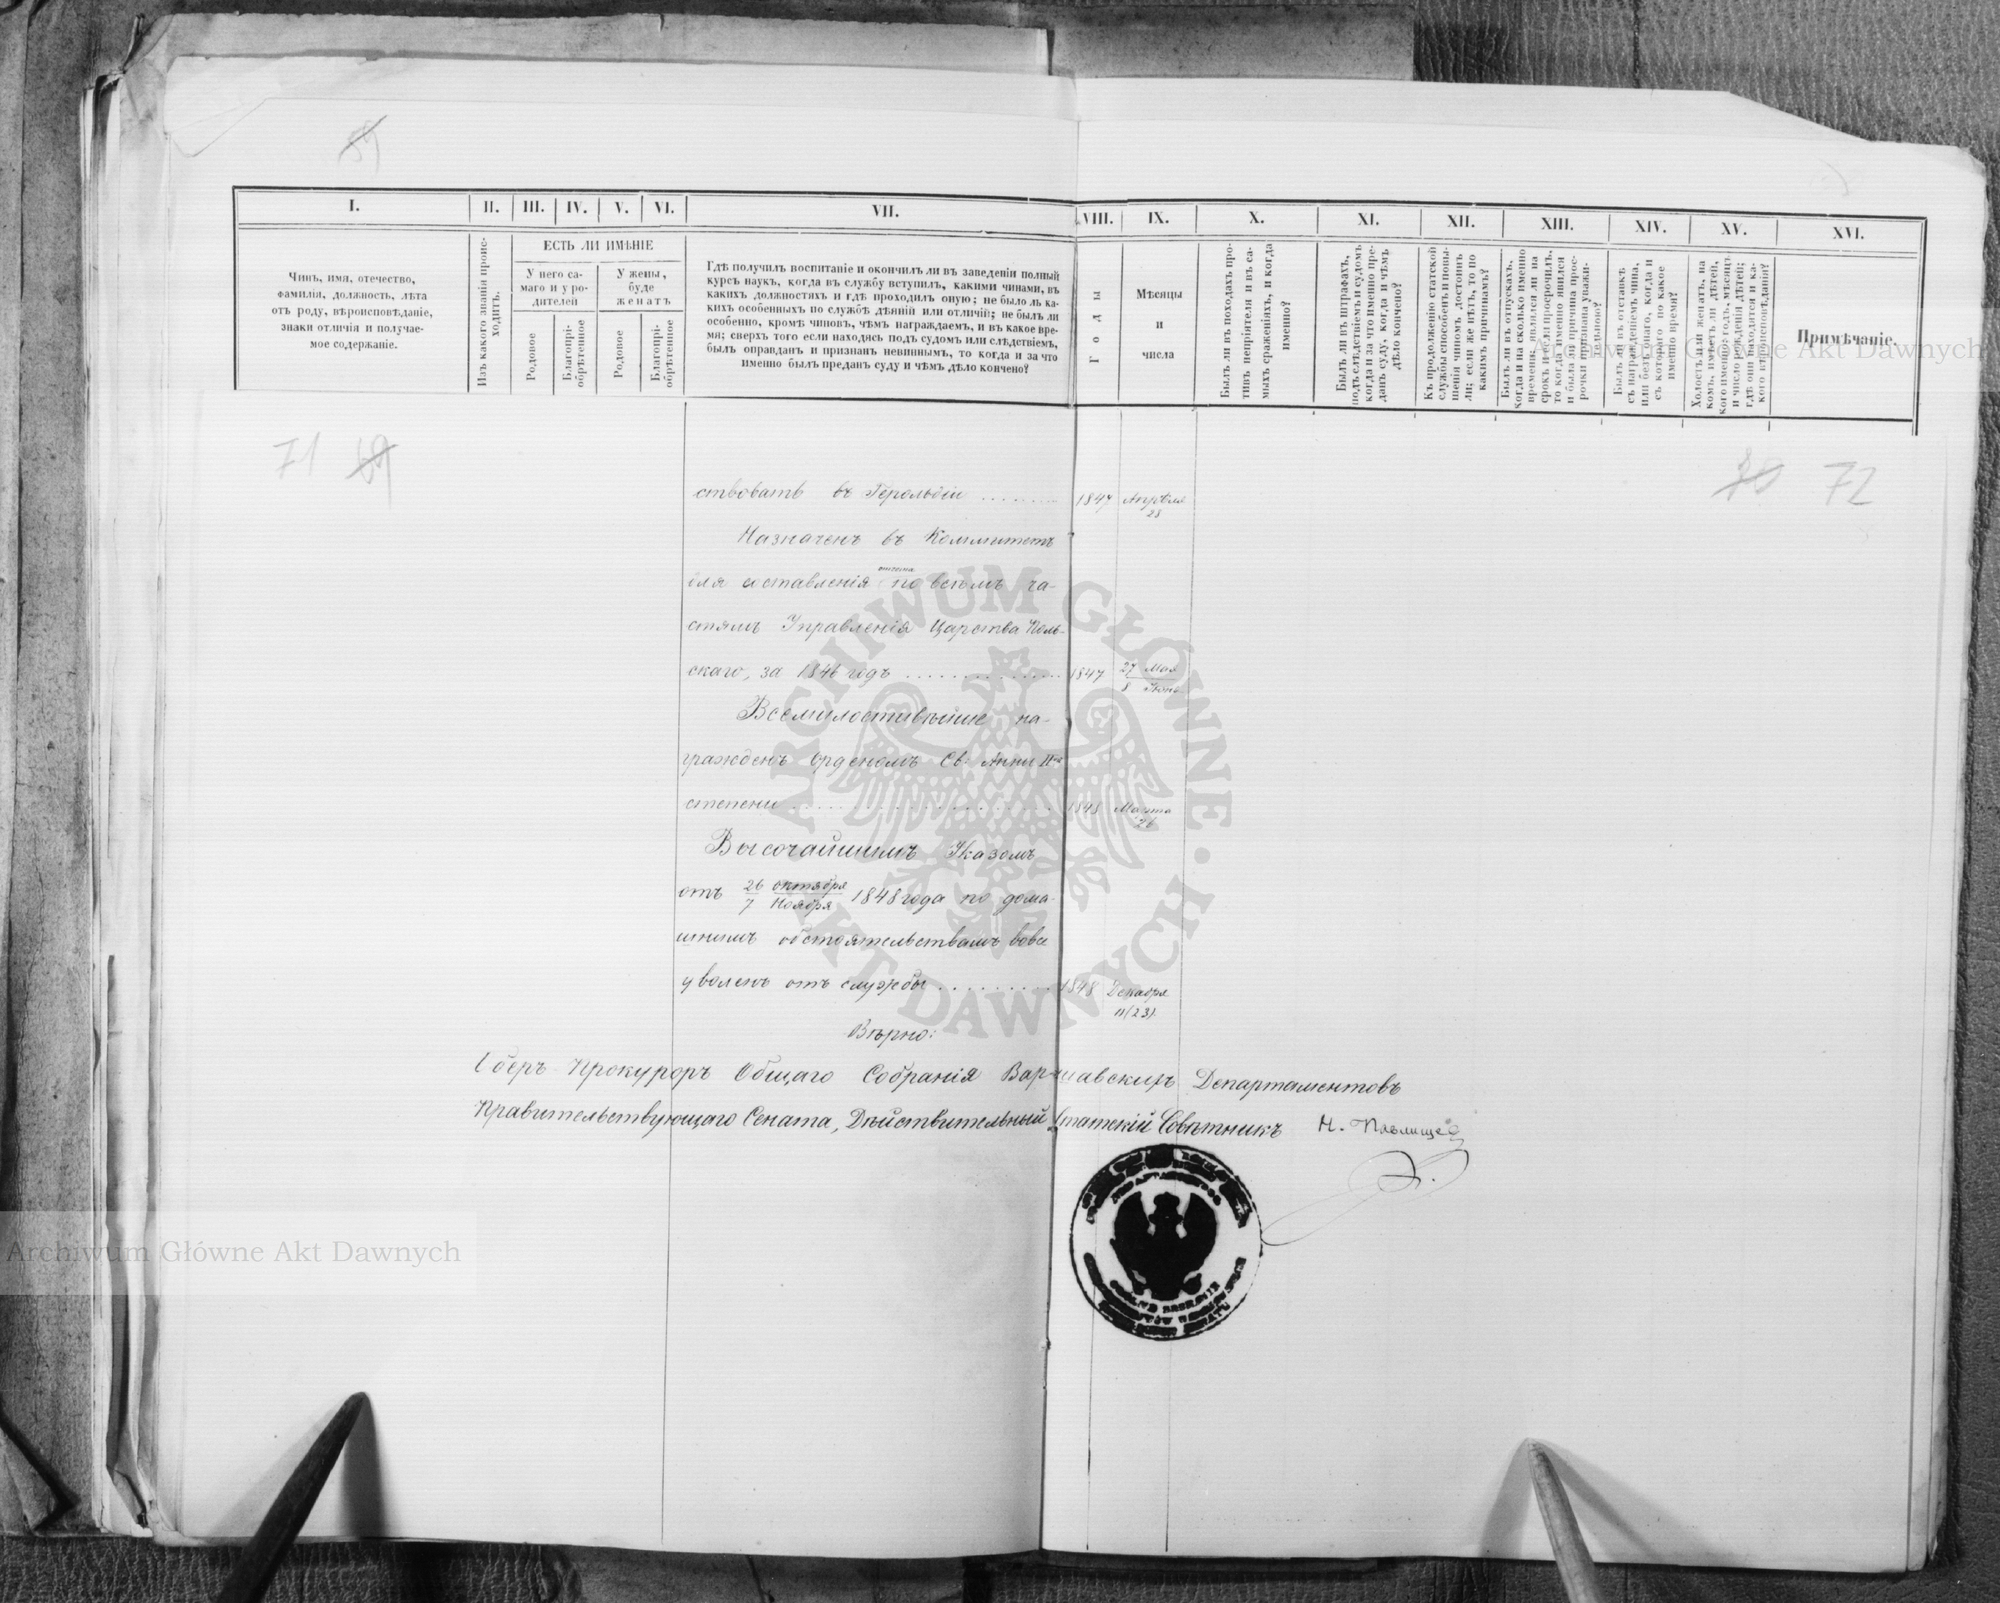 59
I. II. III. IV. V. VI. VII. VIII. IX. X. XI. XII. XIII. XIV. XV. XVI.
Чинъ, имя, отечество,
фамилія, должность, лѣта
отъ роду, вѣроисповѣданіе,
знаки отличія и получае-
мое содержаніе.
Изъ какого званія проис-
ходитъ.
ЕСТЬ ЛИ ИМѢНІЕ
У него са-
маго и у ро-
дителей
У жены,
буде
женатъ
Родовое
Благопрі-
обрѣтенное
Родовое
Благопрі-
обрѣтенное
Гдѣ получилъ воспитаніе и окончилъ ли въ заведеніи полный
курсъ наукъ, когда въ службу вступилъ, какими чинами, въ
какихъ должностяхъ и гдѣ проходилъ оную; не было ль ка-
кихъ особенныхъ по службѣ дѣяній или отличій; не былъ ли
особенно, кромѣ чиновъ, чѣмъ награждаемъ, и въ какое вре-
мя; сверхъ того если находясь подъ судомъ или слѣдствіемъ,
былъ оправданъ и признанъ невиннымъ, то когда и за что
именно былъ преданъ суду и чѣмъ дѣло кончено?
Годы
Мѣсяцы
и
числа
Былъ ли въ походахъ про-
тивъ непріятеля и въ са-
мыхъ сраженіяхъ, и когда
именно?
Былъ ли въ штрафахъ,
подъ слѣдствіемъ и судомъ
когда и за что именно пре-
данъ суду, когда и чѣмъ
дѣло кончено?
Къ продолженію статской
службы способенъ и повы-
шенія чиномъ достоинъ
ли; если же нѣтъ, то по
какимъ причинамъ?
Былъ ли въ отпускахъ,
когда и на сколько именно
времени; явился ли на
срокъ и если просрочилъ,
то когда именно явился
и была ли причина прос-
рочки признана уважи-
тельною?
Былъ ли въ отставкѣ
съ награжденіемъ чина,
или безъ онаго, когда и
съ котораго по какое
именно время?
Холостъ или женатъ, на
комъ, имѣетъ ли дѣтей,
кого именно; годъ, мѣсяцъ
и число рожденія дѣтей;
гдѣ они находятся и ка-
кого вѣроисповѣданія?
Примѣчаніе.
71 69
70 72
ствовать въ Герольдіи 1847 Апрѣля
23
Назначенъ въ Коммитетъ
отчета
для составленія по всѣмъ ча-
стямъ Управленія Царства Поль-
скаго, за 1846 годъ 1847 27 Мая
8 Іюня
Всемилостивѣйше на-
гражденъ Орденомъ Св: Анны II
степени 1848 Марта
26
Высочайшимъ Указомъ
отъ 26 октября
7 Ноября 1848 года по дома-
шнимъ обстоятельствамъ вовсе
уволенъ отъ службы 1848 Декабря
11(23).
Вѣрно:
Оберъ-Прокуроръ Общаго Собранія Варшавскихъ Департаментовъ
Правительствующаго Сената, Дѣйствительный Статскій Совѣтникъ Н. Павлищев
ARCHIWUM GŁÓWNE AKT DAWNYCH
Archiwum Główne Akt Dawnych
Archiwum Główne Akt Dawnych